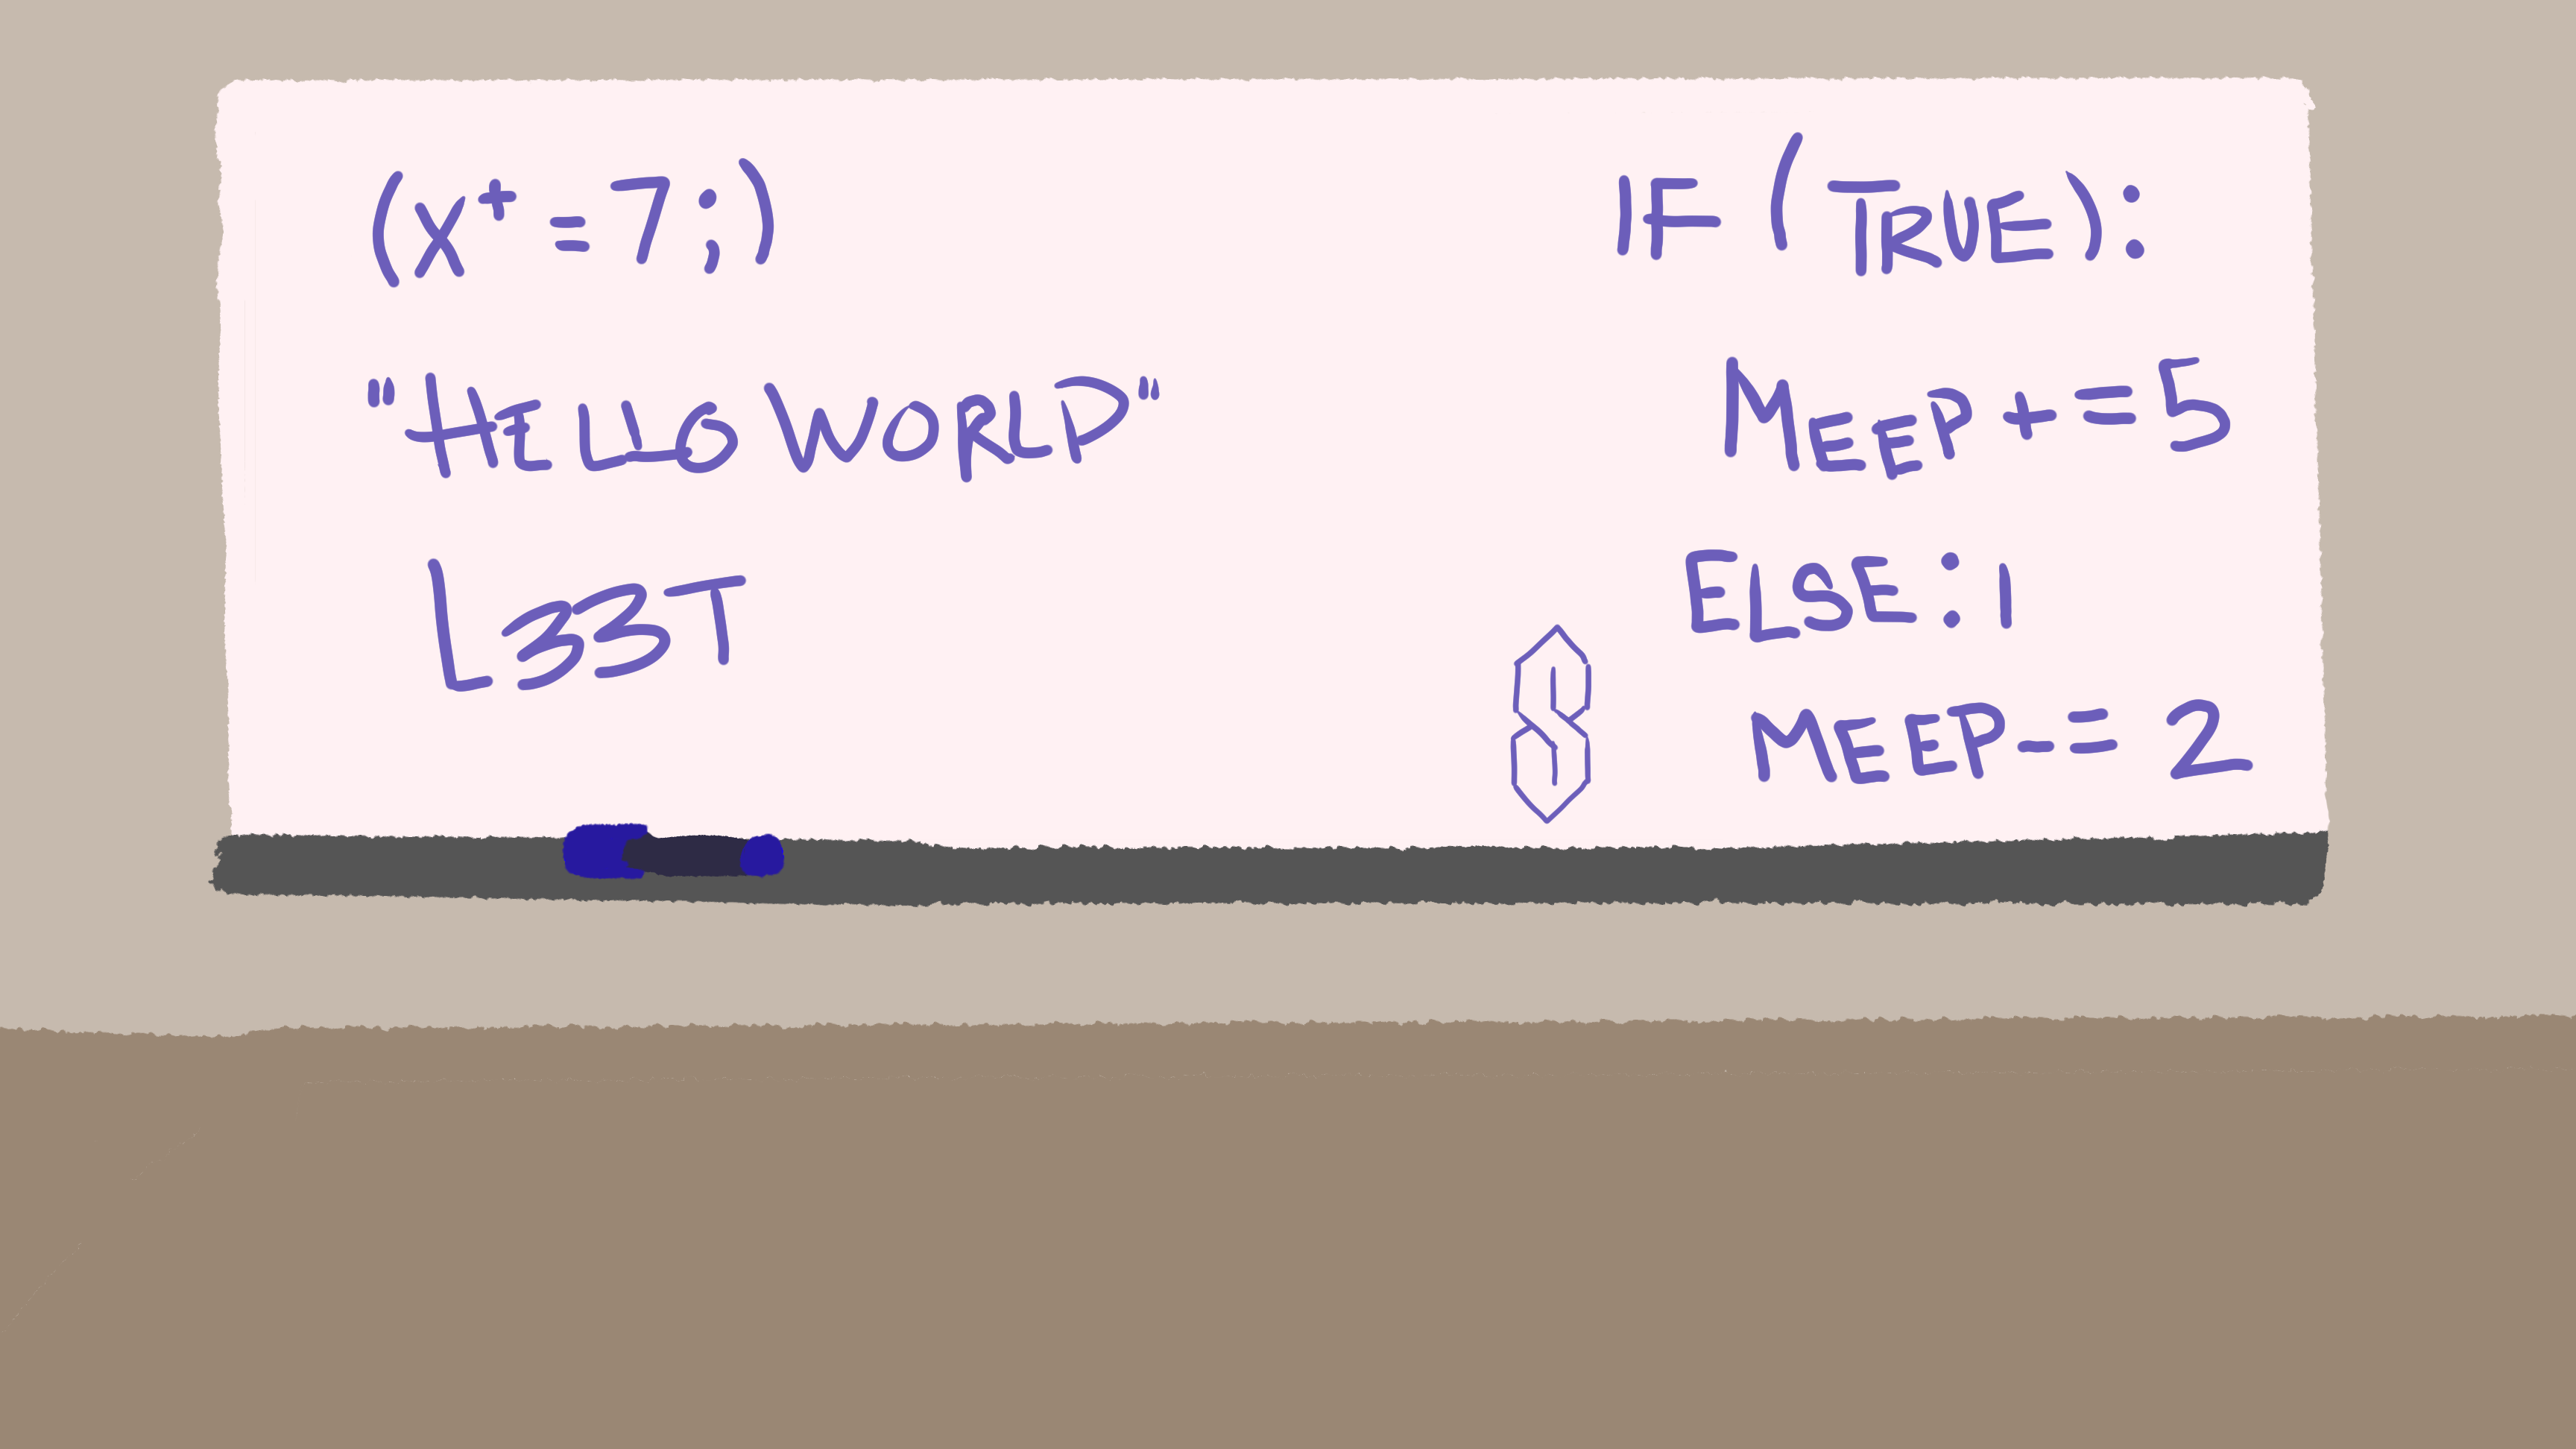 (X+=7;)
"HELLO WORLD"
L33T
IF (TRUE):
MEEP +=5
ELSE:1
MEEP-= 2
S